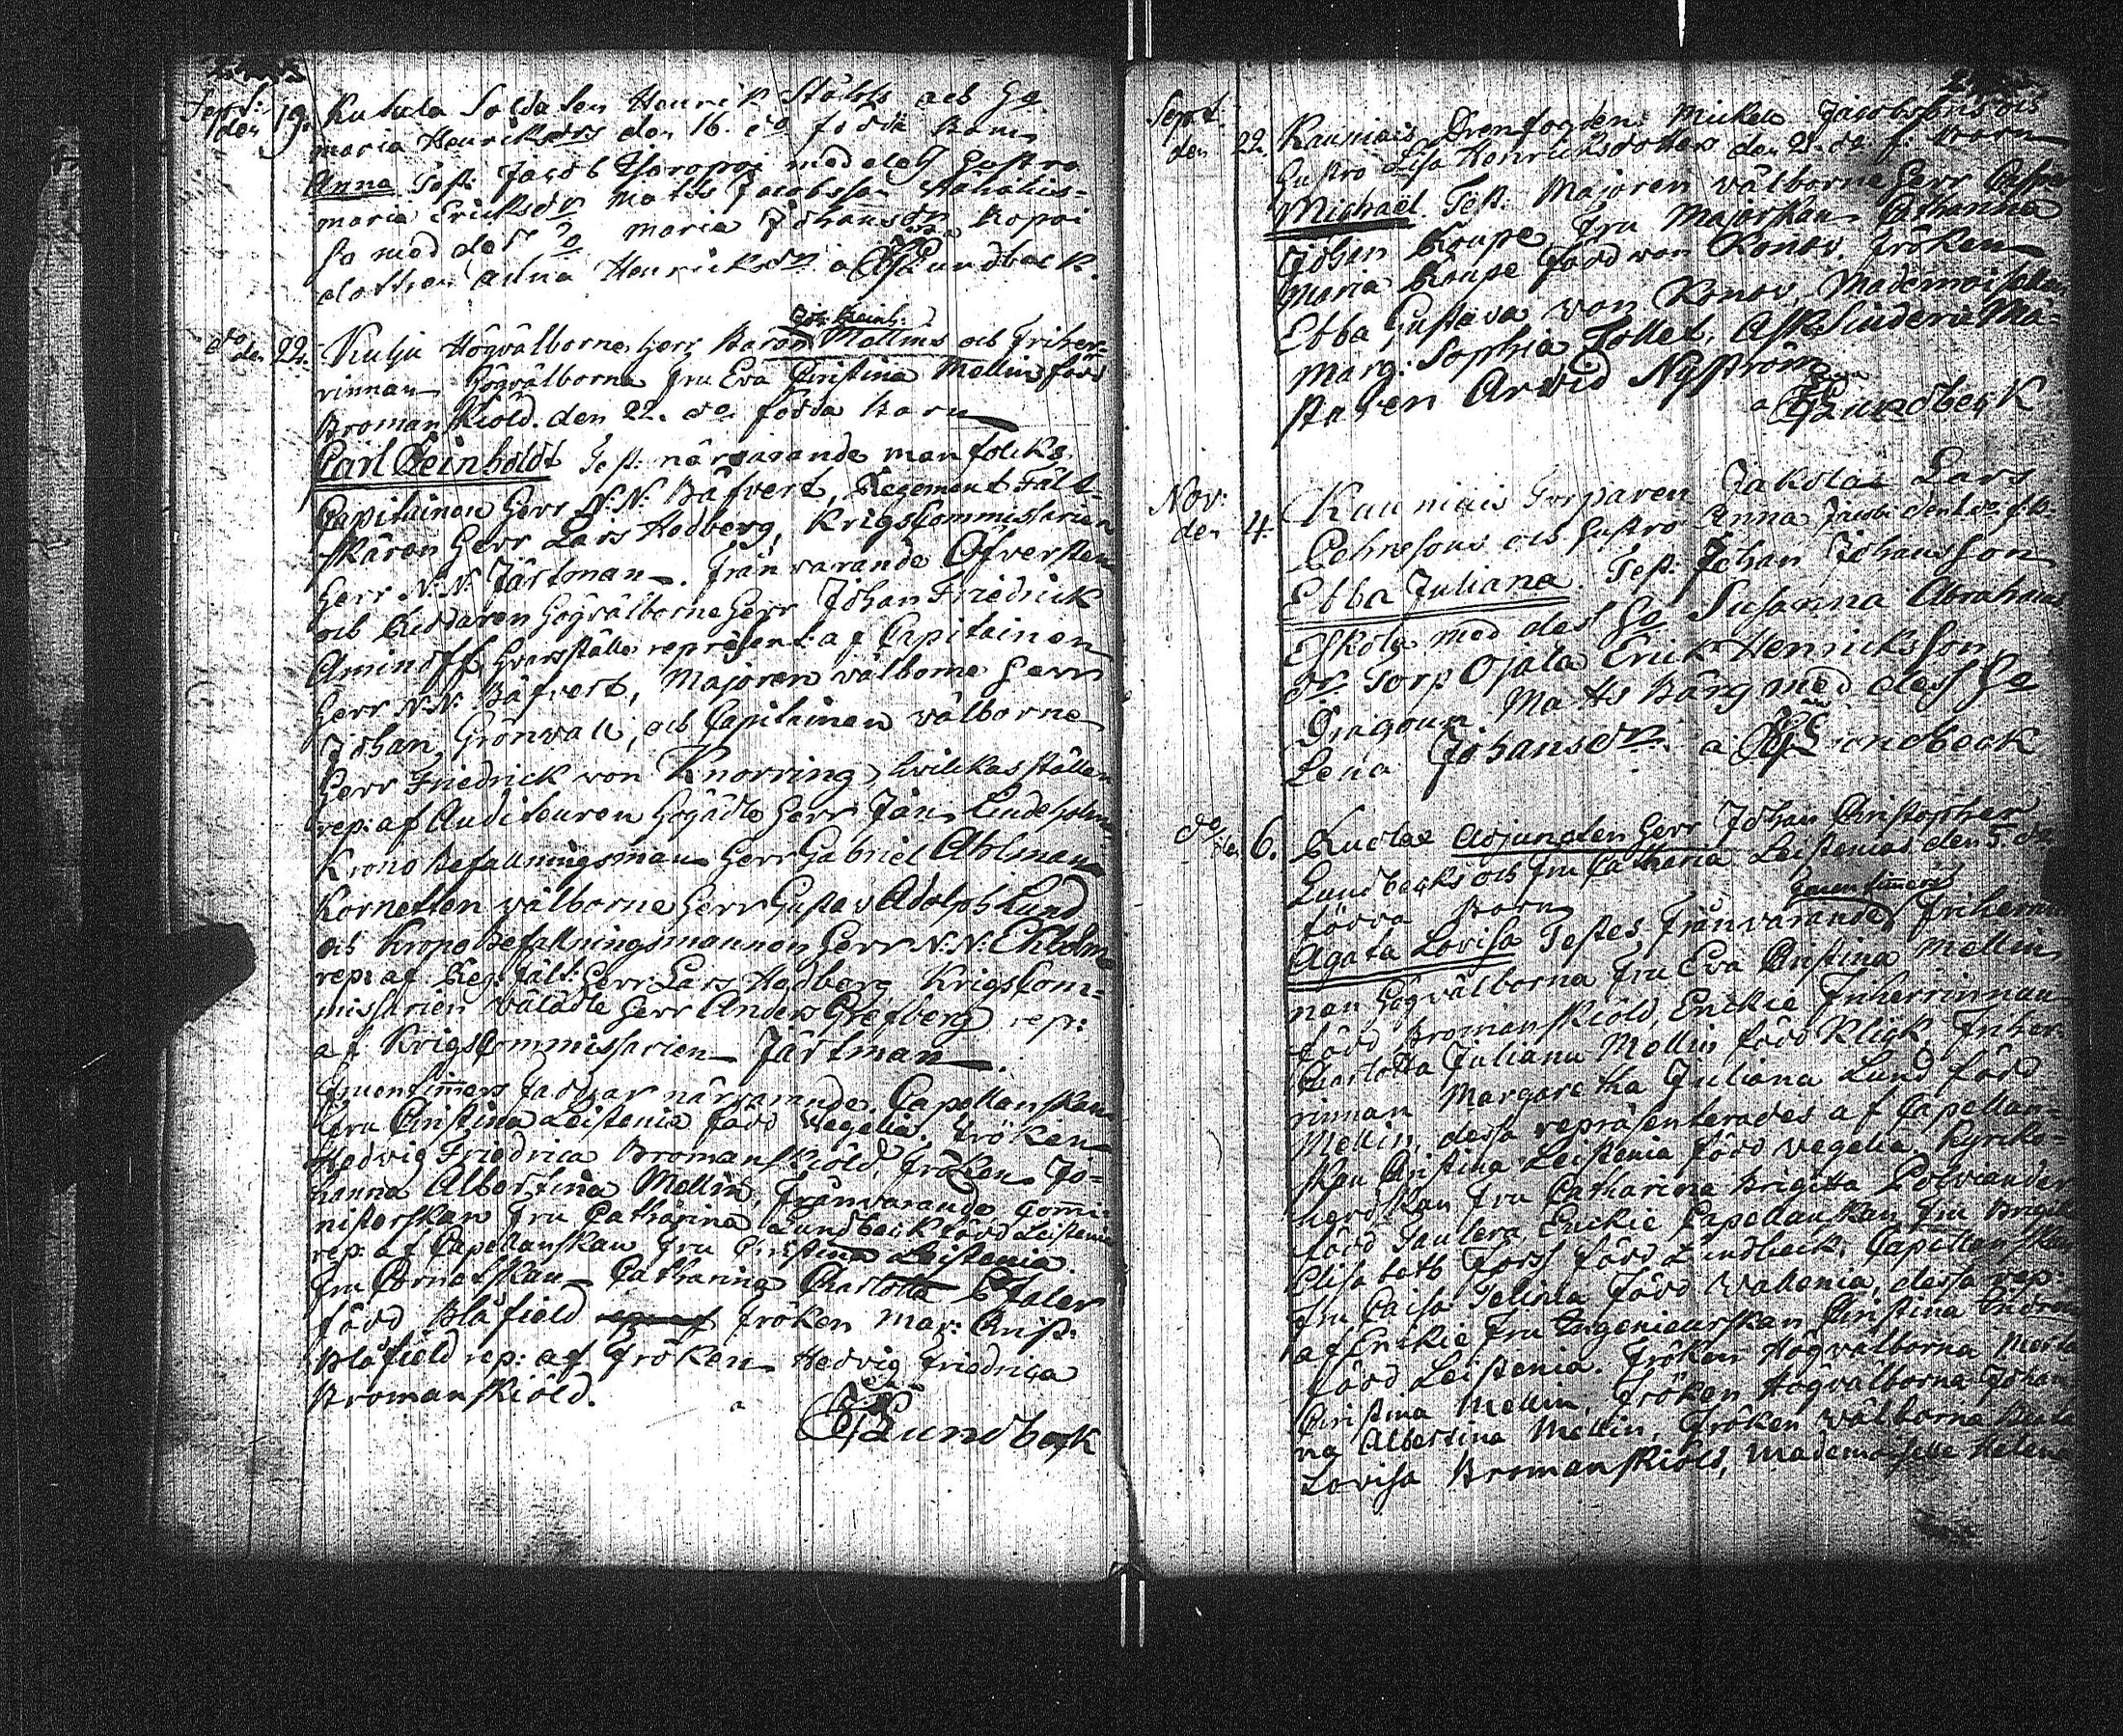 Sept:
den 19. Kutala Soldaten Henrik Stålts och Ho
maria Henriksdrs den 16. do född Barn
Anna Test: Jacob med dess Hustro
maria Ericksdr Matts Jacobsson
Ho med dess maria Johansdr Kopoi
dottren Anna Henricksdr a Lundbeck.
Joh: Reinh:
do den 22. Kulju Högvälborne Herr Baron Mellins och Friher-
rinnan Högvälborna Fru Eva Christina Mellin född
Bromanskiöld. den 22. do födda Barn
Carl Reinholdt Test: närvarande manfolcks
Capitainen Herr N:N: Bäfvert, Regements Fält-
skären Herr Lars Hedberg, KrigsCommissarien
Herr N:N: Järtman. Frånvarande Öfversten
och Riddaren Högvälborne Herr Johan Friedrick
Aminoff hvars ställe represent: af Capitainen
Herr N:N: Bäfvert, Majoren välborne Herr
Johan Grönvall, och Capitainen välborne
Herr Friedrick von Knorring, hvilckas ställen
rep: af Auditeuren Högädle Herr Jan Lindeholm
Krono Befallningsman Herr Gabriel Ahlman
Kornetten välborne Herr Gustav Adolph Lund
och Krono Befallningsmannen Herr N:N: Ekholm
rep: af Reg: Fält: Herr Lars Hedberg KrigsCom-
missarien välädle Herr Anders Grefberg repr:
af KrigsCommissarien Järtman.
Fruentimers Faddrar närvarande. Capellanskan
Fru Christina Leistenia född Vegelia, Fröken
Hedvig Friedrica Bromanskiöld, Fröken Jo-
hanna Albertina Mellin, Frånvarande Commi-
nisterskan Fru Catharina Lundbeck född Leistenia
rep: af Capellanskan Fru Christina Leistenia.
Fru Cornetskan Catharina Charlotta
född Blåfield Fröken Mar: Christ:
Blåfield rep: af Fröken Hedvig Friedrica
Bromanskiöld. a
Lundbeck
Sept.
den 22. Kauniais Drenfogden Mickel Jacobsons och
Hustro Lisa Henricksdotters den 21. do f: Barn
Michael Test: Majoren välborne Herr
Johan Taupe, Fru Majorskan Johanna
Maria Taupe född von Konow, Fröken
Ebba Gustava von Konow, Mademoiselle
Marg: Sophia Tollet,
Arvid Nyström
a Lundbeck
Nov:
den 4. Kauniais Torparen Jakola Lars
och Hustro Anna Jacobs:
Ebba Juliana. Test: Johan Johansson
Eskola med dess Ho Susanna Abrahams
dr. Torp Ojala Erick Henricksson
Dragoun Matts Bärg med dess Ho
Lena Johansdr. a Lundbeck
do den 6. Adjuncten Herr Johan Christopher
Lundbecks och Fru Catharina Leistenias den 5. do
fruentimers
födda Barn
Agata Lovisa Testes, Frånvarande Friherrin
nan Högvälborna Fru Eva Christina Mellin
född Bromanskiöld, Enckie Friherrinnan
Charlotta Juliana Mellin född Klick, Friher-
rinnan Margaretha Juliana Lund född
Mellin, dessa repräsenterades af Capellan-
skan Christina Leistenia född Vegelia. Kyrcko-
herdskan Fru Catharina Brigitta Polviander
född Enckie Capellanskan Fru Brigita
Elisabeth Forss född Lundbeck. Capellanskan
Fru Caisa född Wallenia, dessa rep:
af Enckie Fru Ingenieurskan Christina
född Leistenia. Fröken Högvälborna
Christina Mellin, Fröken Högvälborna Johan
na Albertina Mellin, Fröken välborna Beata
Lovisa Bromanskiöld, Mademoiselle Helena